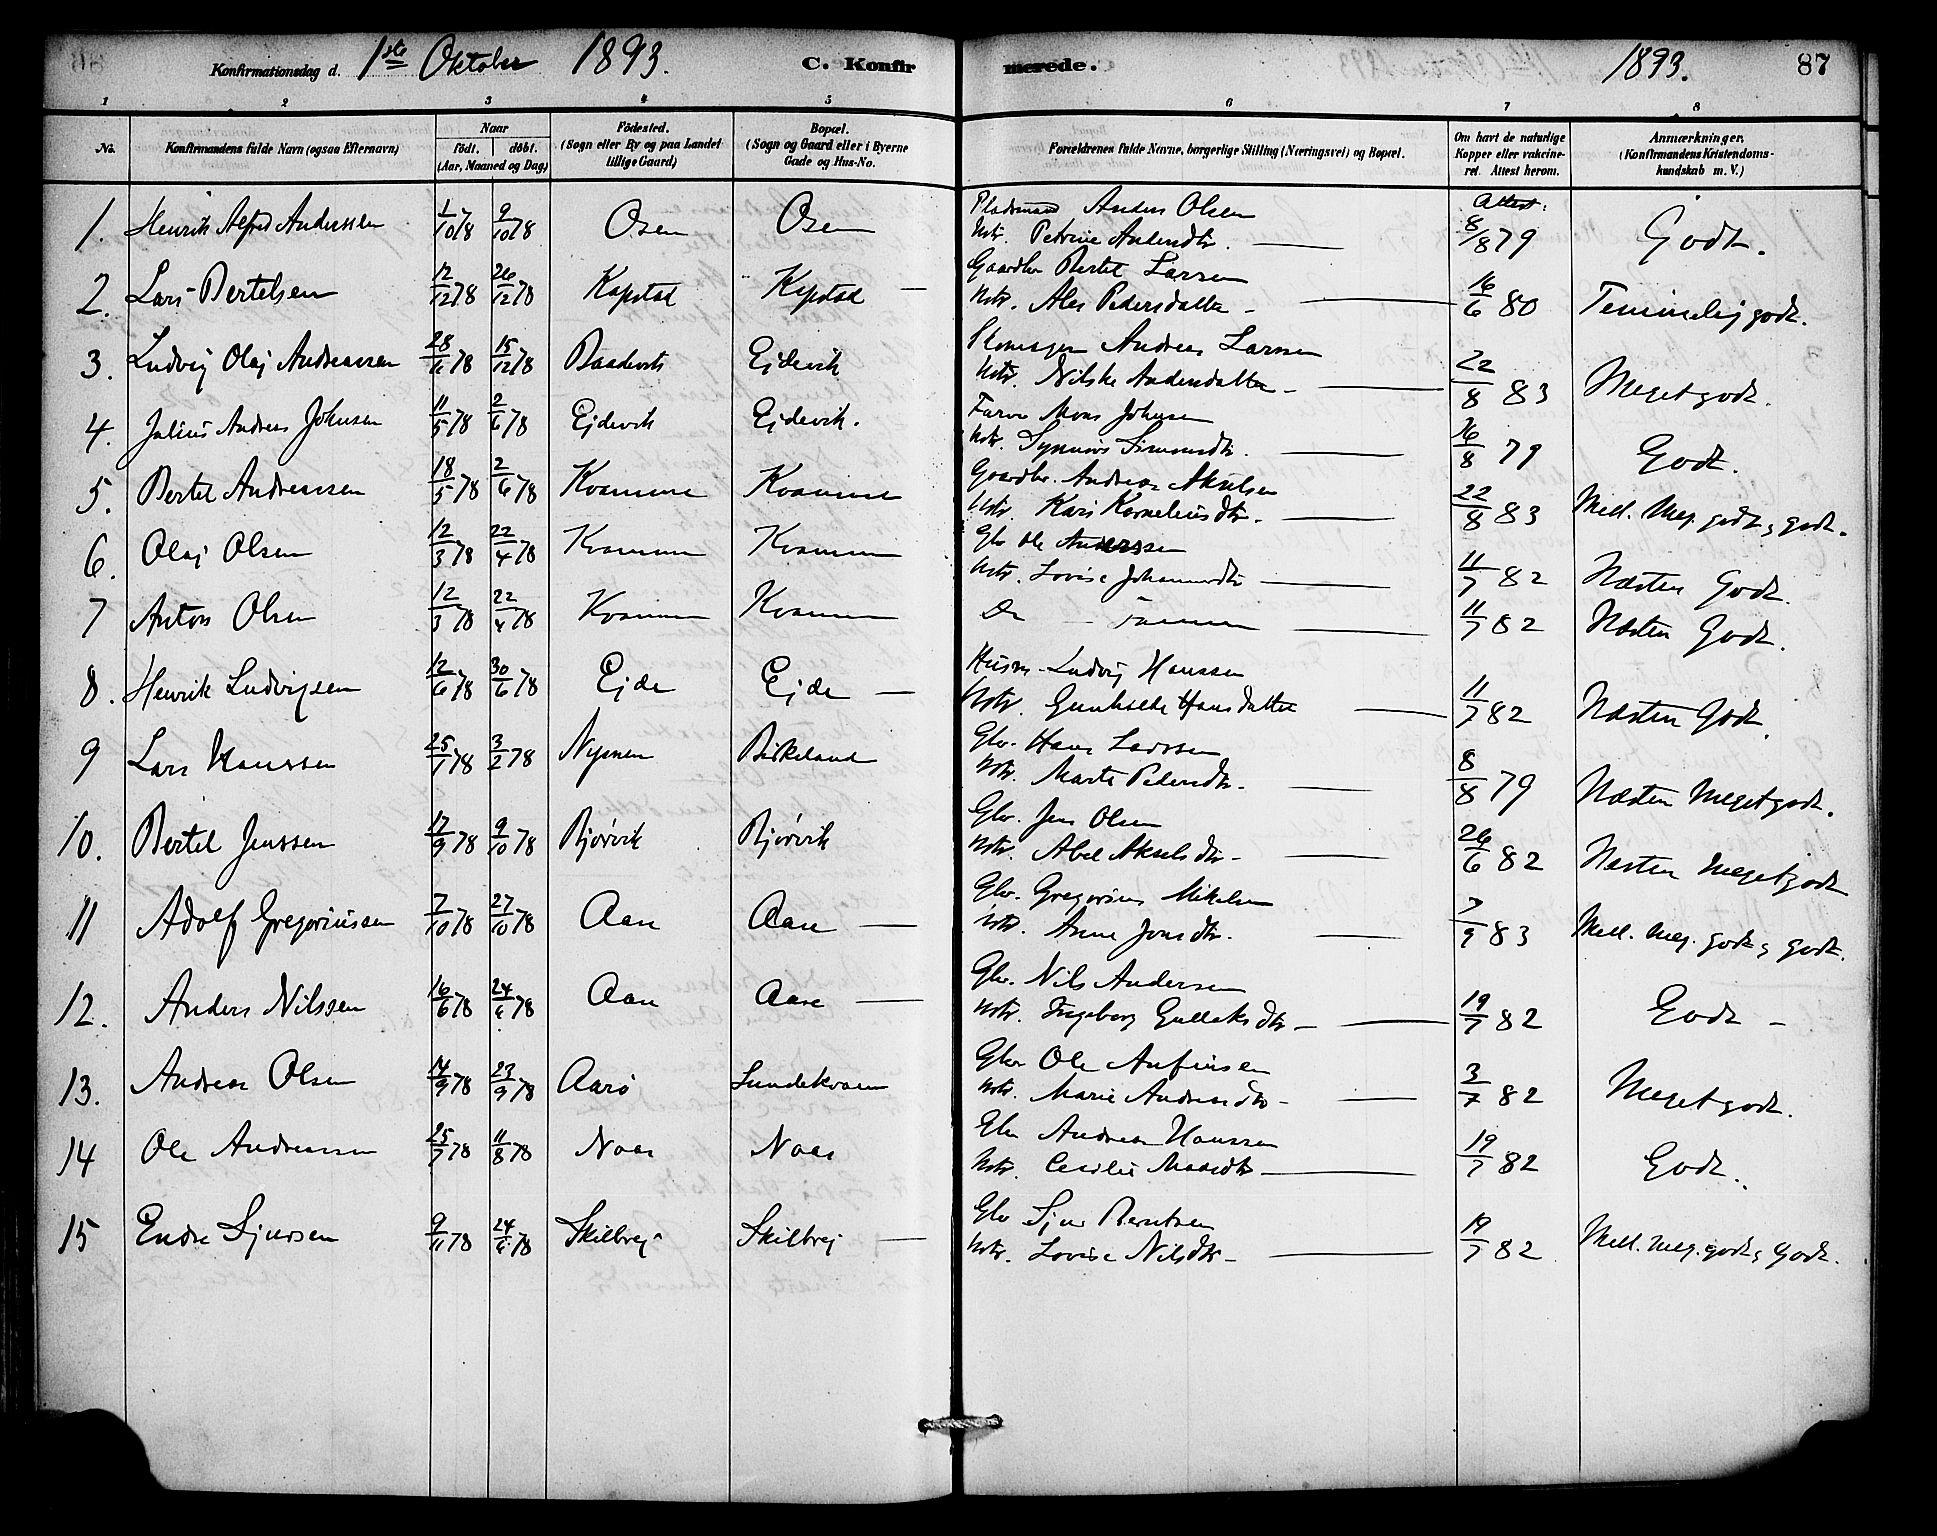 Konfirmationsdag d. 1ste Oktober 1893. C. Konfirmerede. 1893. 87
1 2 3 4 5 6 7 8
No. Konfirmandens fulde Navn (ogsaa Efternavn) Naar født. døbt. (Aar, Maaned og Dag) Födested. (Sogn eller By og paa Landet tillige Gaard) Bopæl. (Sogn og Gaard eller i Byerne Gade og Hus-No. Forældrenes fulde Navne, borgerlige Stilling (Næringsvei) og Bopæl. Om havt de naturlige Kopper eller vakcineret. Attest herom. Anmærkninger, (Konfirmandens Kristendomskundskab m. V.)
1. Henrik Alfred Anderssen 1/10 78 9/10 78 Osen Osen Pladsmand Anders Olsen Attest:
Hstr. Petrine Andersdtr. 8/8 79 Godt.
2. Lars Bertelsen 12/12 78 26/12 78 Kapstad Kapstad Gaardbr Bertel Larsen
Hstr. Ales Pedersdatter 16/6 80 Temmelig godt.
3. Ludvig Olaj Andreassen 28/11 78 15/12 78 Ejdevik Skomager Andreas Larsen
Hstr. Nilske Andersdatter 22/8 83 Meget godt.
4. Julius Andreas Johnsen 11/5 78 2/6 78 Ejdevik Ejdevik. Mons Johnsen
Hstr. Synnøve Simonsdtr. 16/8 79 Godt.
5. Bertel Andreassen 18/5 78 2/6 78 Kvamme Kvamme Gaardbr. Andreas Akselsen
Hstr. Kari Korneliusdtr. 22/8 83 Mell. Meg. godt, godt.
6. Olaj Olsen 12/3 78 22/4 78 Kvammen Kvammen Gbr Ole Anderssen
Hstr. Lovise Johannesdtr 11/7 82 Næsten Godt.
7 Anton Olsen 12/3 78 22/4 78 Kvammen Kvammen De samme 11/7 82 Næsten Godt.
8. Henrik Ludvigsen 12/6 78 30/6 78 Ejde Ejde Husm. Ludvig Hanssen
Hstr. Gunhilde Hansdatter 11/7 82 Næsten Godt.
9 Lars Hanssen 25/1 78 3/2 78 Birkeland Gbr. Hans Larssen
Hstr. Marte Pedersdtr. 8/8 79 Næsten Meget godt.
10. Bertel Jenssen 17/9 78 9/10 78 Bjørvik Bjørvik Gbr. Jens Olsen
Hstr. Abel Akselsdtr 26/6 82 Næsten Meget godt
11 Adolf Gregoriussen 7/10 78 27/10 78 Aase Aase Gbr. Gregorius Mikelsen
Hstr. Anne Jonsdtr. 7/9 83 Mell. Meg. godt, godt.
12. Anders Nilssen 16/6 78 24/6 78 Aase Aase Gbr. Nils Andersen
Hstr. Ingeborg Gullaksdtr 19/7 82 Godt
13. Andreas Olsen 14/9 78 23/9 78 Aarø Lundekvam Gbr Ole Anfinsen
Hstr. Marie Andreasdtr 3/7 82 Meget godt.
14 Ole Andreassen 25/7 78 11/8 78 Naas Naas Gbr Andreas Hanssen
Hstr. Cecilie Madsdtr 19/7 82 Godt.
15 Endre Sjurssen 9/6 78 24/6 78 Skilbrej Skilbrej Gbr Sjur Berntsen
Hstr. Lovise Nilsdtr 19/7 82 Mell. Meg. godt, Godt.